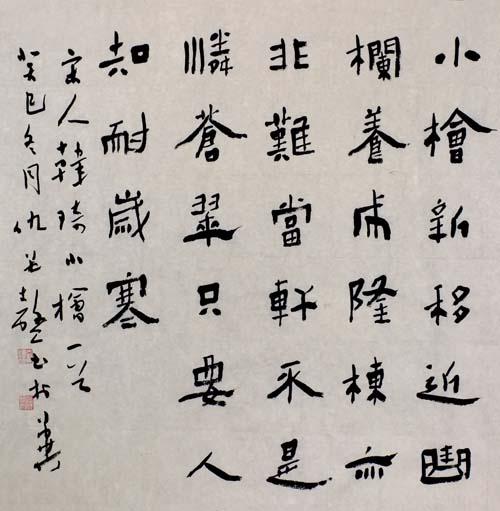 小檜新移近曲
欄養成隆棟亦
非難當軒不是
憐蒼翠只要人
知耐歲寒
宋人韓琦小檜一首
癸巳冬月仇書於